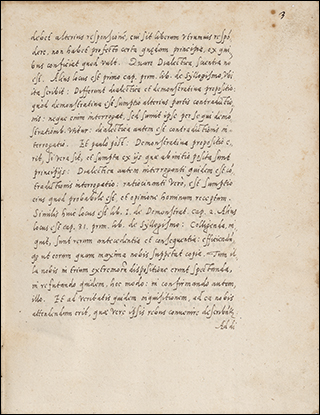 3
debet alterius responsione, cui sit liberum utramvis respō
dere, non habet profecto certa quædam principia, ex qui
bus conficiat quod vult. Quare Dialectica, scientia nō
est. Alius locus est primo cap. prim. lib. de Syllogismo, Vbi
ita scribit: Differunt dialectica et demonstrativa propositio:
quod demonstrativa est sumptio alterius partis contradictio
nis: neque enim interrogat, sed sumit ipse per se qui demō
strationib. utitur: dialectica autem est contradictionis in
terrogatio. Et paulo pōst: Demonstrativa propositio e
rit, si vera sit, et sumpta ex ijs quæ ab initio posita sunt
principijs: Dialectica autem interroganti quidem est cō
tradictionis interrogatio: ratiocinanti vero, est sumptio
eius quod probabile est, et opinione hominum receptum.
Similis huic locus est lib. 1. de Demonstrat. cap. 2. Alius
locus est cap. 31. prim. lib. de Syllogismo: Colligenda, in
quit, sunt rerum antecedentia et consequentia: efficiendū
ut eorum quam maxima nobis suppetat copia. Tum il
la nobis in trium extremorū dispositione erunt spectanda,
in refutando quidem, hoc modo: in confirmando autem,
illo. Et ad veritatis quidem inquisitionem, ad ea nobis
attendendum erit, quæ vere ipsis rebus convenire describūt
Ad di